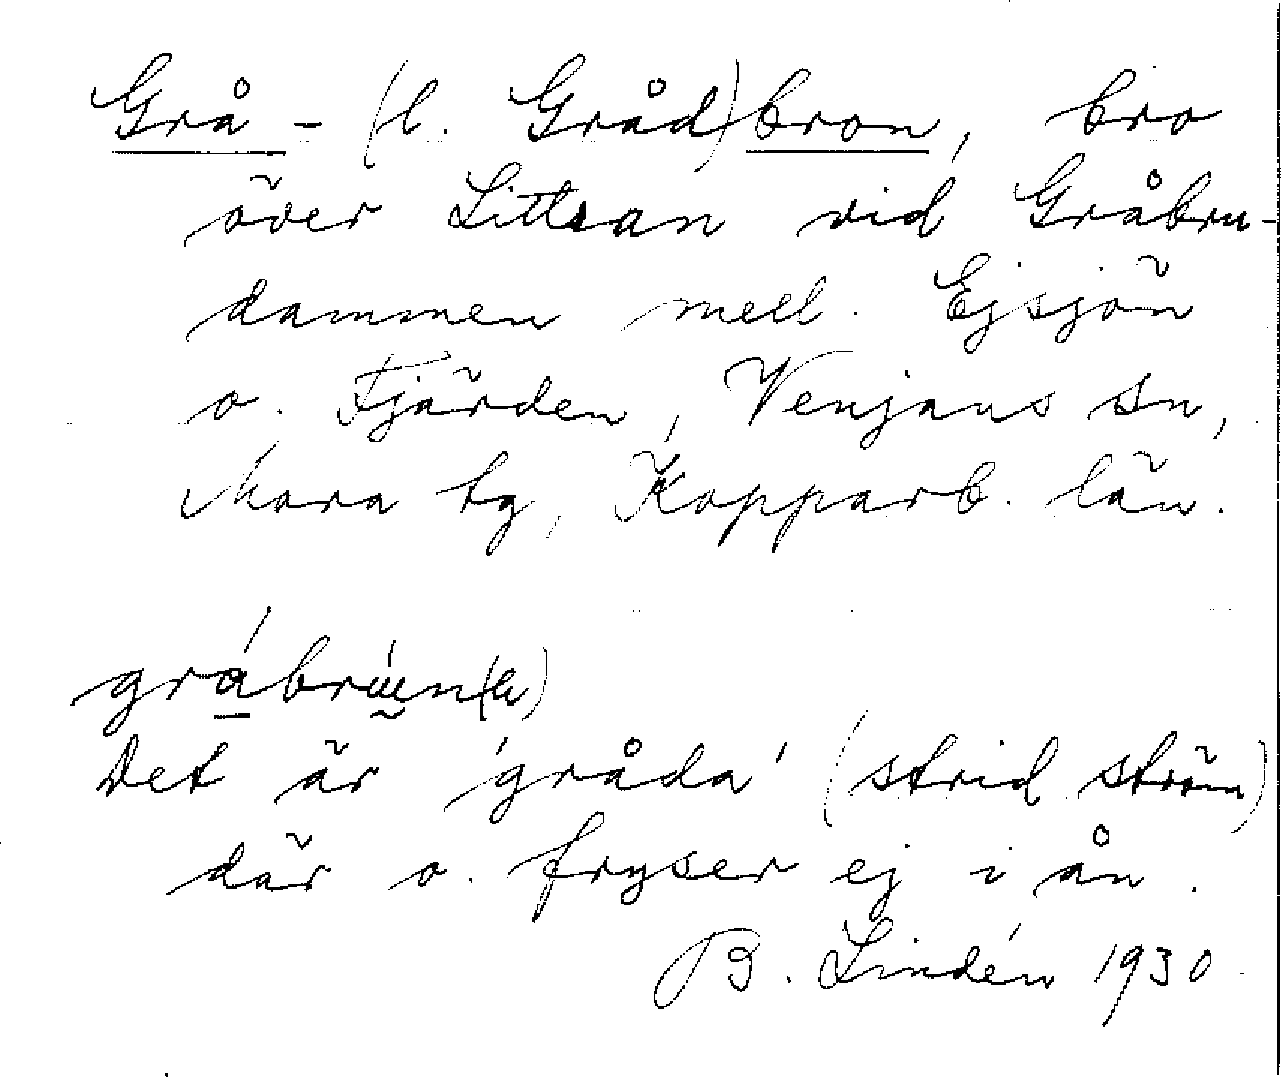 Grå- (l. Gråd)bron, bro
över Littsan vid Gråbru-
dammen mell. Ejsjön
o. Fjärden, Venjans sn,
Mora tg, Kopparb. län.
Det är 'gråda' (strid ström)
där o. fryser ej i ån.
B. Lindén 1930